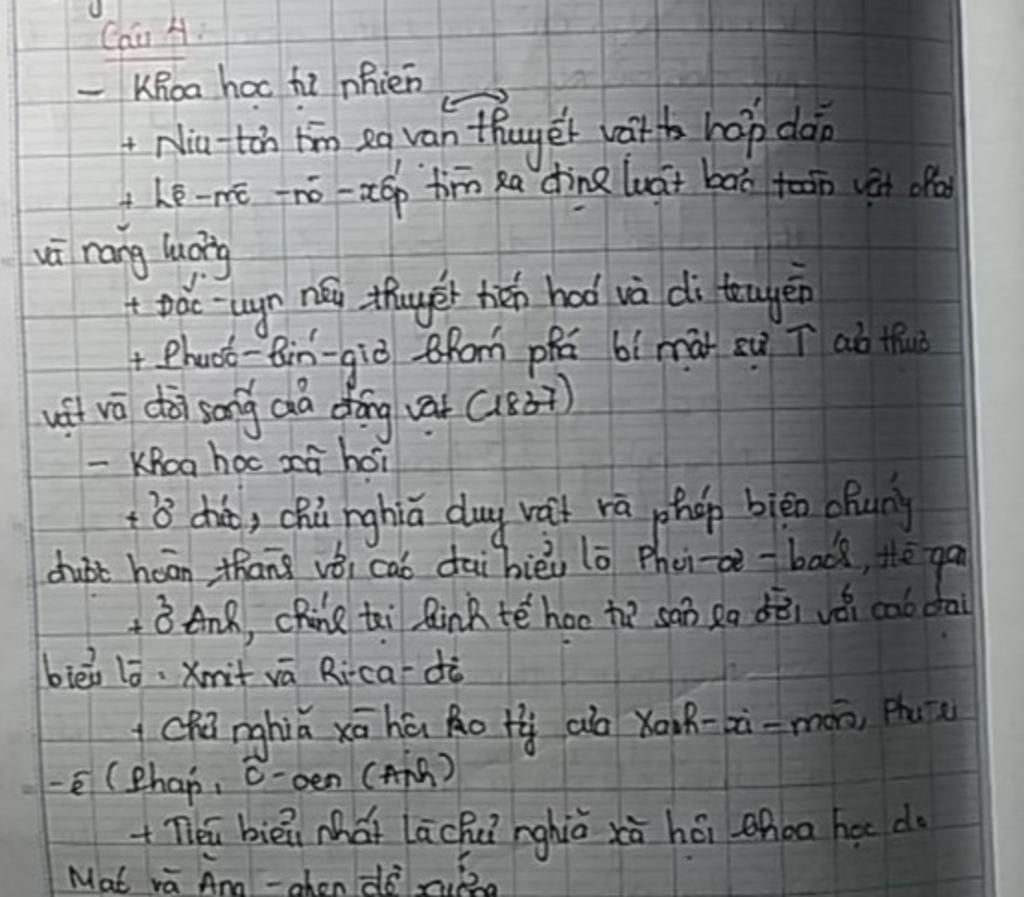 Câu 4.
- Khoa học tự nhiên
+ Niu-tơn tìm ra vạn thuyết vật hấp dẫn
+ Lê-mê-nô-xốp tìm ra định luật bảo toàn vật chất
và năng lượng
+ Đác-uyn nêu thuyết tiến hoá và di truyền
+ Phuốc-kin-giơ khám phá bí mật sự T của thực
vật và đời sống của động vật (1837)
- Khoa học xã hội
+ Ở Đức, chủ nghĩa duy vật và phép biện chứng
được hoàn thành với các đại biểu là Phoi-ơ-bách, Hê gan
+ Ở Anh, chính trị kinh tế học tư sản ra đời với các đại
biểu là: Xmit và Ri-ca-đô
+ Chủ nghĩa xã hội không tưởng của Xanh-xi-mông, Phu-ri
-ê (Pháp), Ô-oen (Anh)
+ Tiêu biểu nhất là chủ nghĩa xã hội khoa học do
Mác và Ăng-ghen đề xướng